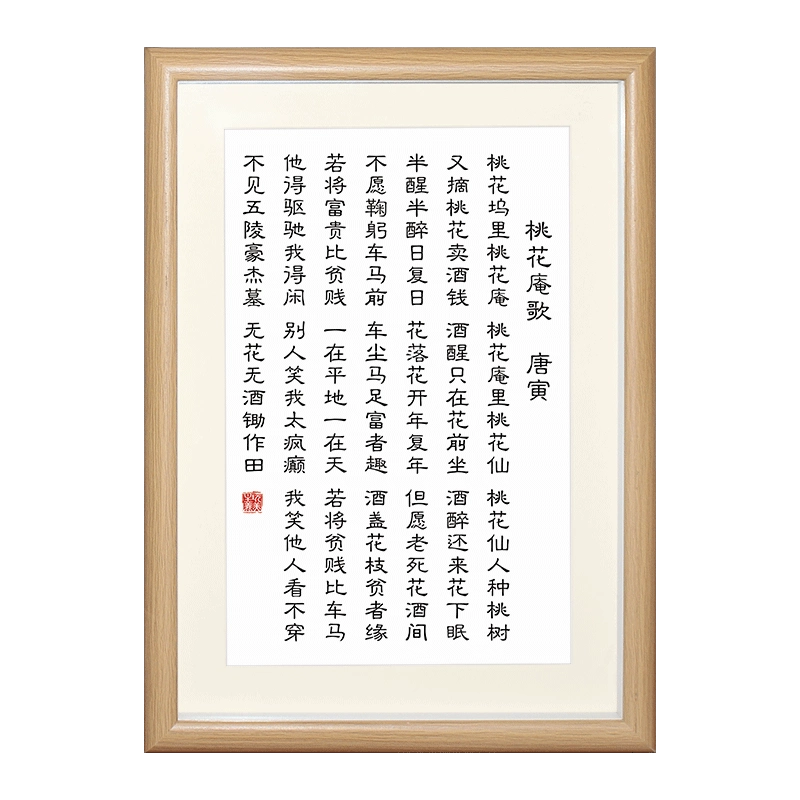 桃花庵歌 唐寅
桃花坞里桃花庵 桃花庵里桃花仙 桃花仙人种桃树
又摘桃花卖酒钱 酒醒只在花前坐 酒醉还来花下眠
半醒半醉日复日 花落花开年复年 但愿老死花酒间
不愿鞠躬车马前 车尘马足富者趣 酒盏花枝贫者缘
若将富贵比贫贱 一在平地一在天 若将贫贱比车马
他得驱驰我得闲 别人笑我太疯癫 我笑他人看不穿
不见五陵豪杰墓 无花无酒锄作田